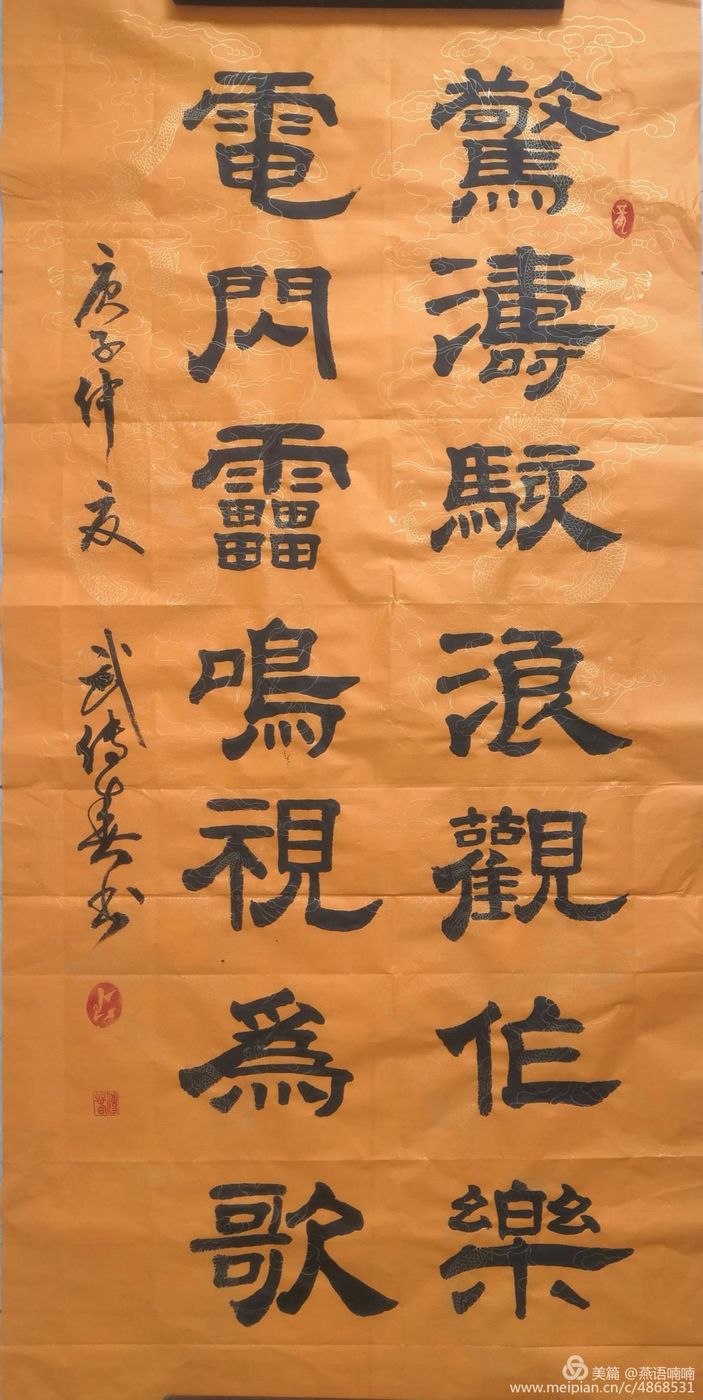 驚濤駭浪觀作樂
電閃靁鳴視為歌
庚子仲夏 武傳春书
美篇 @燕语喃喃
www.meipian.cn/c/4868531